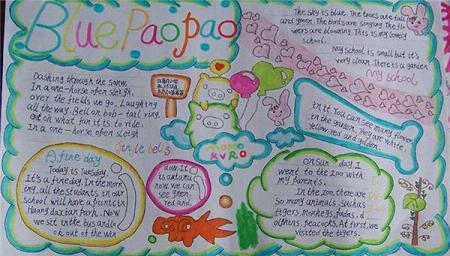 Blue Paopao
The sky is blue. The trees are tall
and green. The birds are singing. The fl
wers are blooming. This is my lovely
school.
My school is small but it's
very clean. There is a garden
My school
in it. You can see many flower
in the garden. They are white,
yellow, red and golden.
Dashing through the snow.
In a one-horse open sleigh,
over the fields we go, Laughing
all the way. Bell on bob-tail ring.
what fun it is to ride
In a one-horse open sleigh
Jingle bells
momo
KVRO
A fine day
Today is Tuesday.
It's a fine day. In the morn
ing, all the students in our
school will have a picnic in
park. Now
we sit in the bus and lo
ok out of the win
dow. It
is autumn
now. we can
see green,
red and
On Sun day I
went to the zoo with
my parents.
In the zoo, there are
so many animals, such as
tigers, monkeys, pandas,
peacocks. At first, we
visited the tigers.